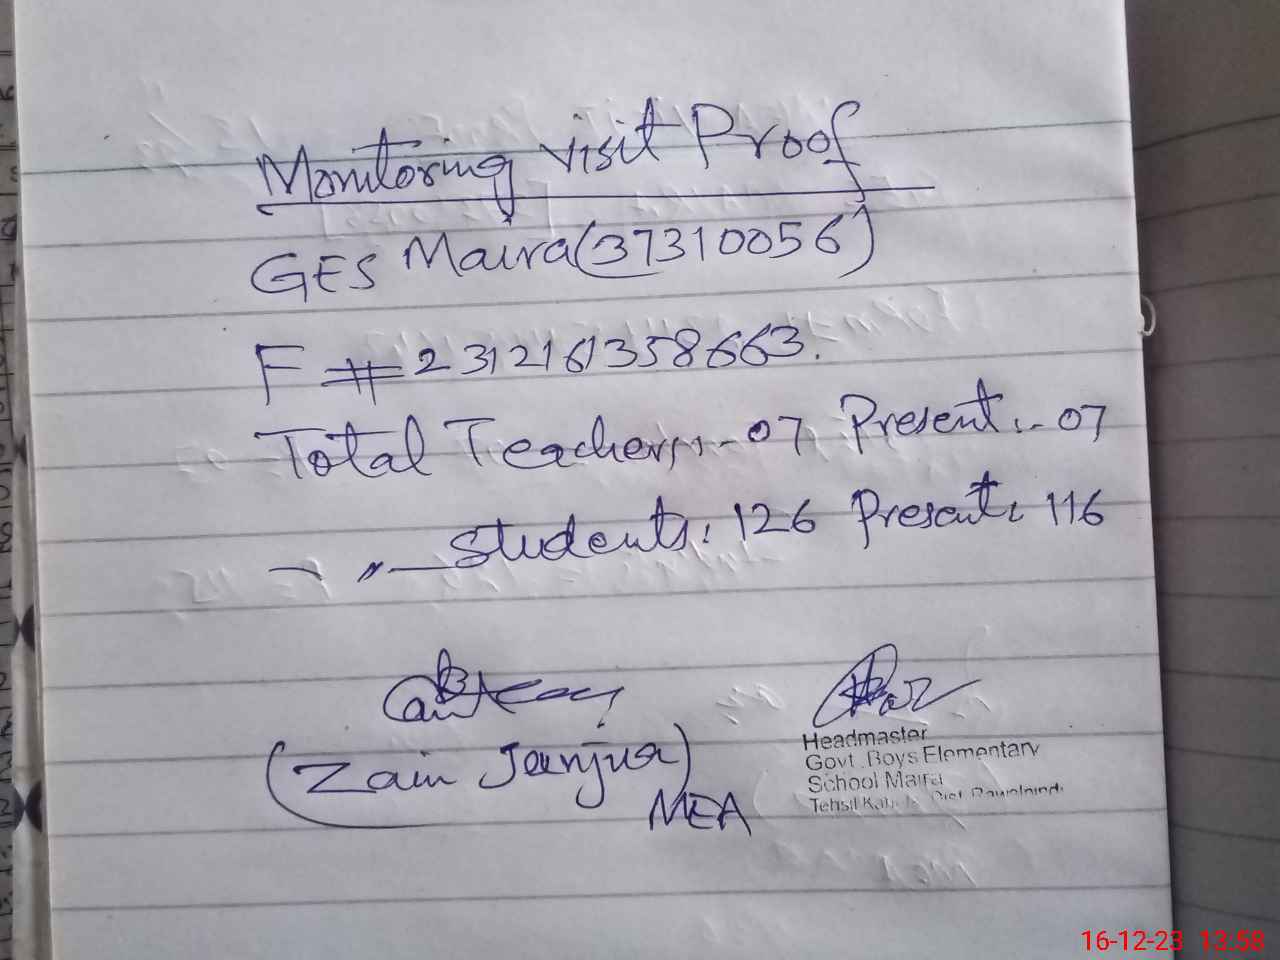 Monitoring visit Proof
GES Maira (37310056)
F # 2312161358663.
Total Teachers:- 07 Present:- 07
— 〃 — Students: 126 Present: 116
(Zain Janjua)
MEA
Headmaster
Govt. Boys Elementary
School Maira
Tehsil Dist Rawalpindi
16-12-23 13:58